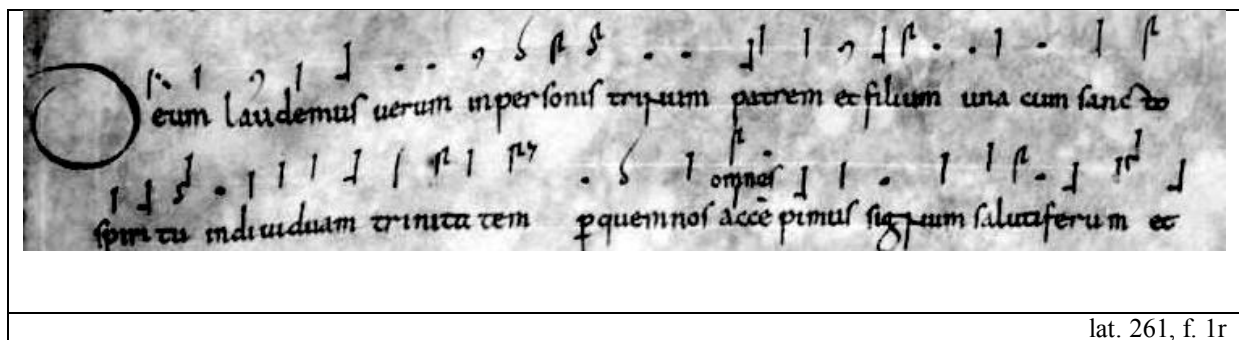 Deum laudemus uerum inpersonis trinum patrem et filium una cum sancto
omnes
spiritu indiuiduam trinitatem ꝑquem nos accepimus signum salutiferum et
lat. 261, f. 1r